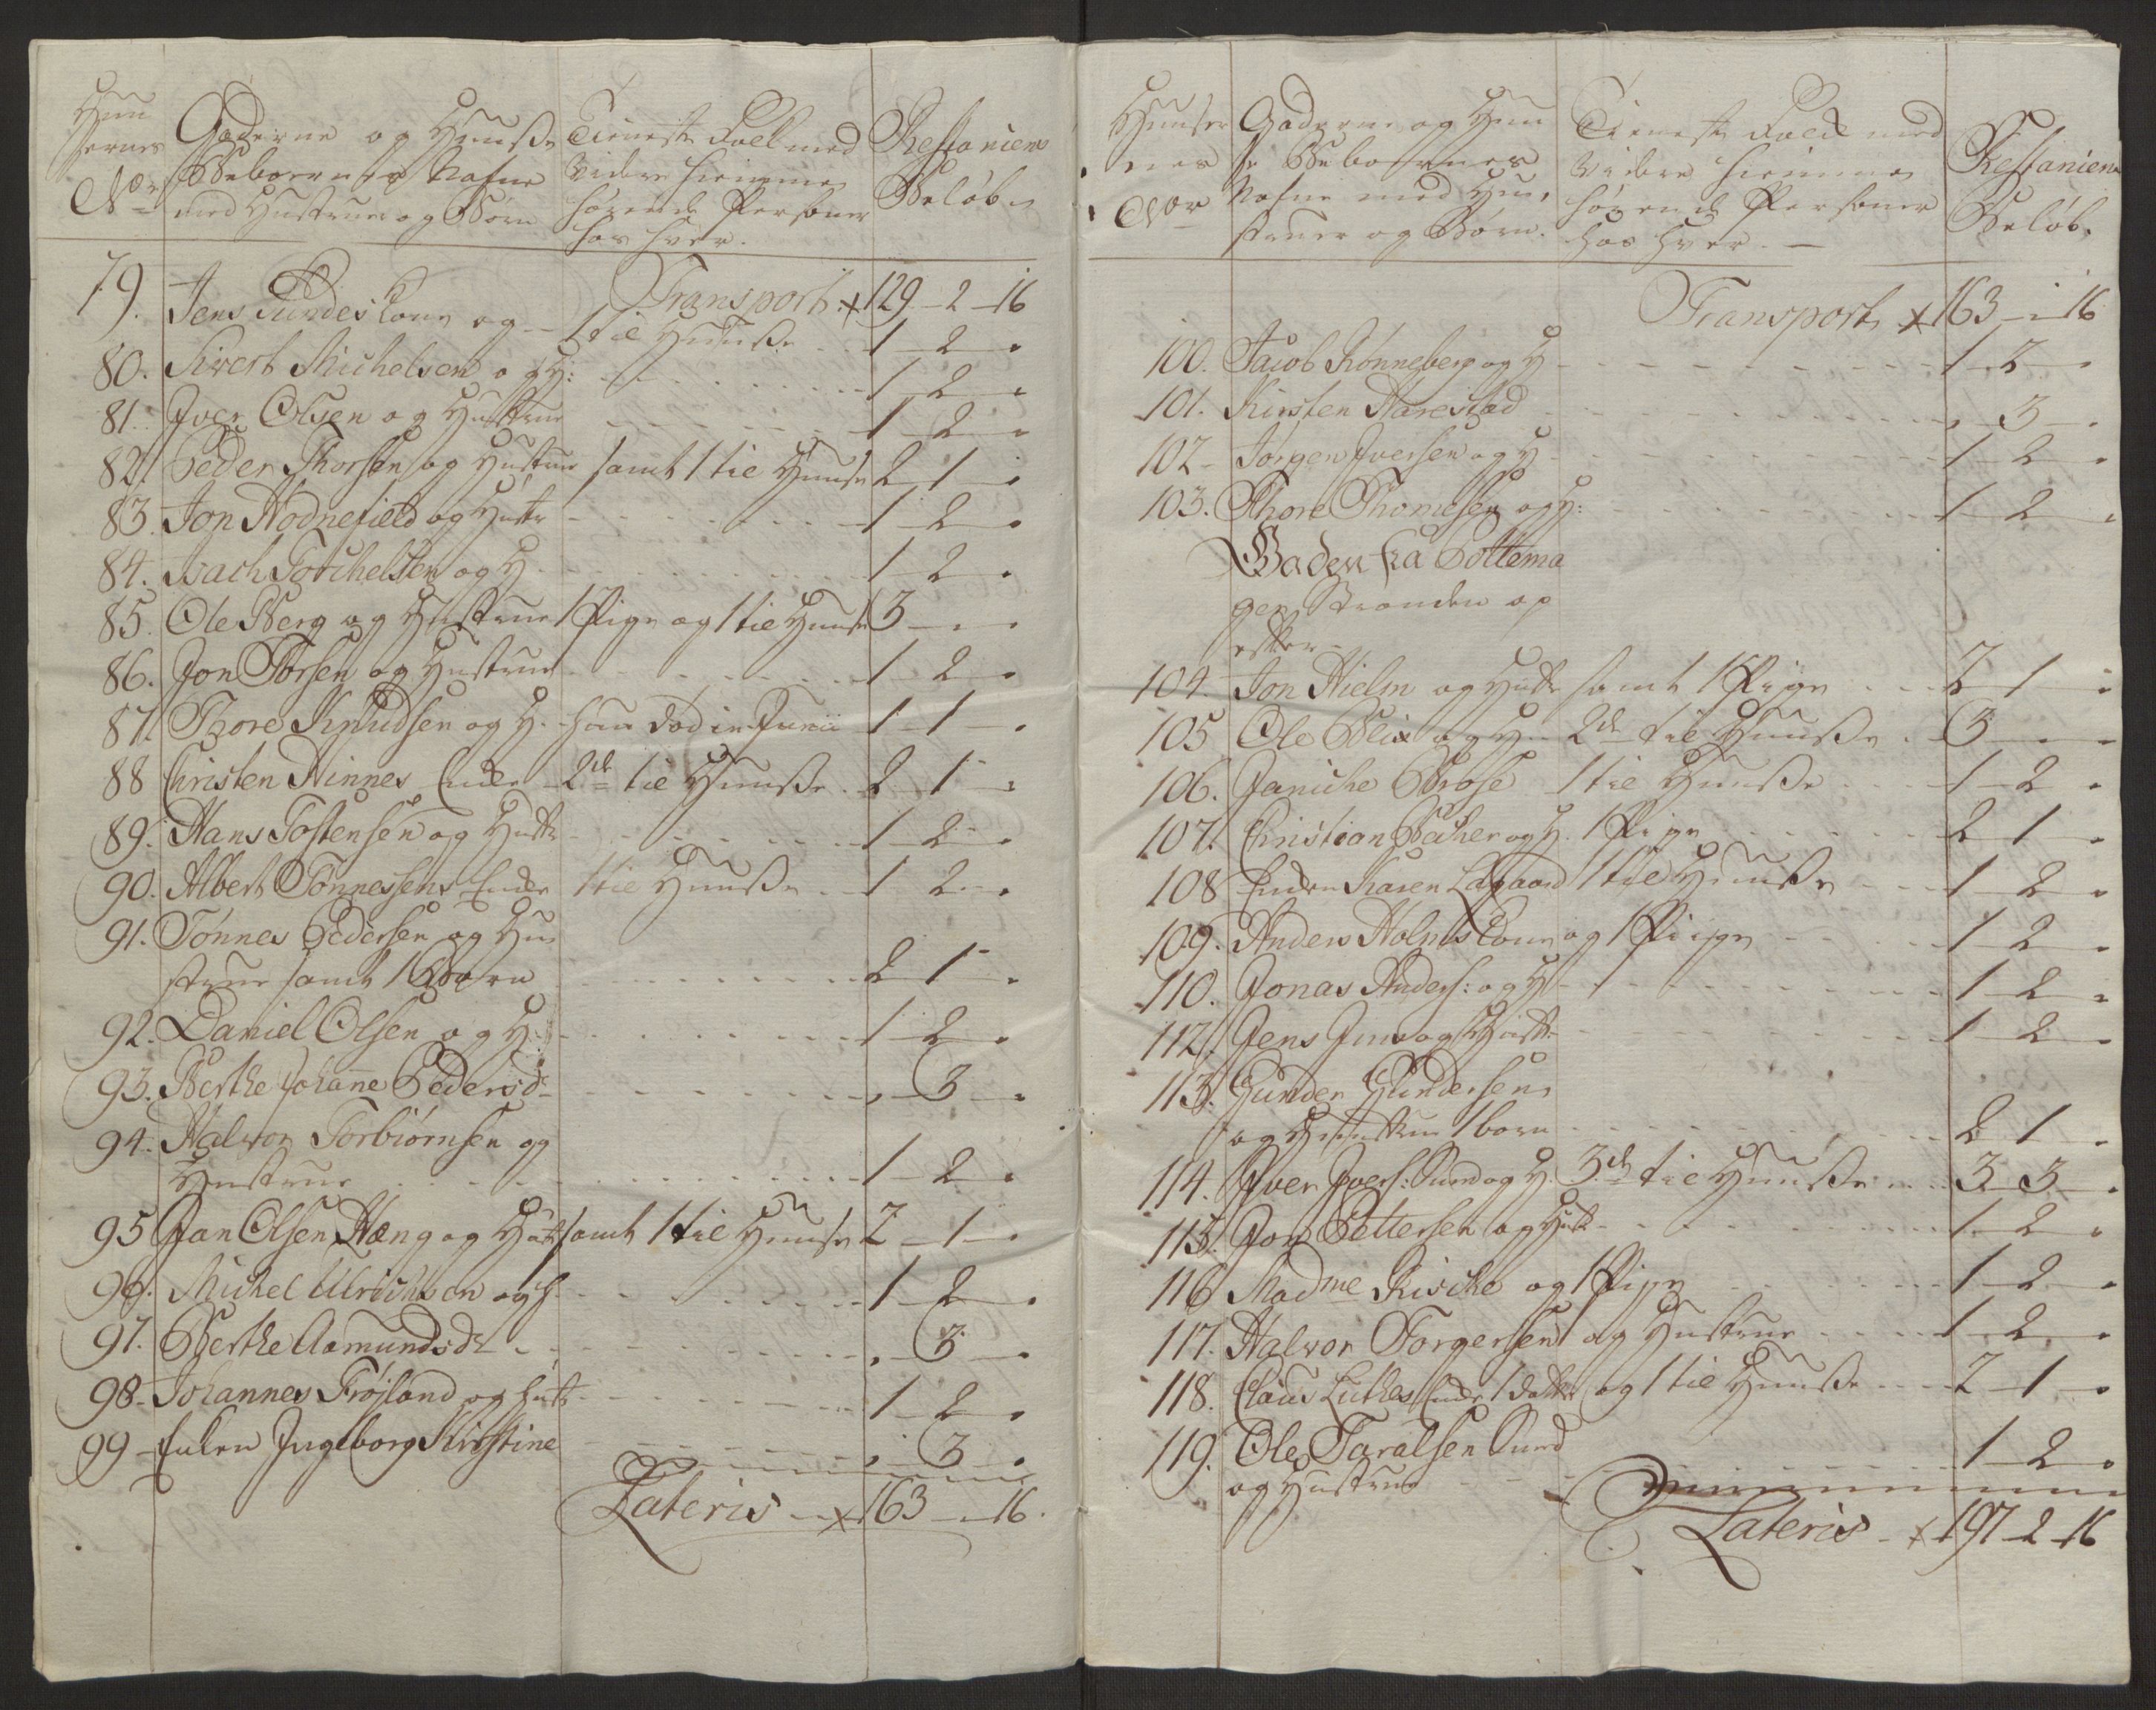 Huu
sernes
No
Gaderne og Huusse
Beboernes Nafne
med Hustruer og Børn
Tieneste Folk med
videre hiemme
hørende Persohner
hos hver.
Restancien
Beløb
Transport x 129 - 2 - 16
79. Jens Sundes Kone og - 1 til Huusse 1 - 2 -
80. Sivert Michelsen og H: 1 - 2 -
81. Iver Olsen og Hustrue 1 - 2 -
82. Peder Thorsen og Hustrue samt 1 til Huuse 2 - 1 -
83. Jon Hodnefield og Hustr 1 - 2 -
84. Isach Torchelsen og H 1 - 2 -
85. Ole Berg og Hustrue 1 Pige og 1 til Huuse 3 - -
86. Jon Torsen og Hustrue 1 - 2 -
87. Thore Knudsen og H. - han død in Junii 1 - 1 -
88 Christen Hinnes Enke - 2de til Huusse 2 - 1 -
89. Hans Tostensen og Hustr 1 - 2 -
90. Albert Tønnessens Enke 1 til Huusse 1 2 -
91. Tønnes Pedersen og Hu
strue samt 1 Børn 2 1 -
92. Daniel Olsen og H: 1 - 2 -
93. Berthe Johanne Pedersdr 3 -
94. Halvor Torbiørnsen og
Hustrue 1 - 2 -
95 Jan Olsen Hæng og Hustr samt 1 til Huuse 2 - 1 -
96. Michel Ulrichsen og H 1 - 2 -
97. Berthe Aamundsdr 3 -
98. Johannes Frøjland og Hustr 1 - 2 -
99 - Enken Ingeborg Kirstine 3 -
Lateris x 163 - 16.
Huuser
nes
No
Gaderne og Huu
se Beboernes
Nafne med Hu,
struer og Børn.
Tieneste Folk med
videre hiemme
hørende Persohner
hos hver. -
Restancien
Beløb.
Transport x 163 - 16
100. Jacob Rønneberg og H 1 - 2 -
101. Kirsten Harestad 3 -
102 - Jørgen Iversen og H 1 - 2 -
103. Thore Thomesen og H: 1 2 -
Gaden fra Pottema
ger Stranden op
efter
104. Jon Hielm og Hustr samt 1 Pige 2 1 -
105 Ole Blix og H. 2de til Huusse 3 - -
106. Janiche Brose 1 til Huusse 1 - 2 -
107. Christian Becher og H. 1 Pige 2 1 -
108 Enken Karen Lagaard 1 til Huusse 1 - 2 -
109. Anders Holms Kone og 1 Piige 1 2 -
110. Jonas Anders: og H 1 - 2 -
112. Jens Juv og Hustr 1 - 2 -
113. Gunder Gundersen
og Hustrue 1 barn 2 1 -
114. Iver Ivers: Sund og H. 3de til Huusse 3 - 3 -
115. Jon Pettersen og Hustr 1 - 2 -
116 Madme Kirche og 1 Pige 1 - 2 -
117. Halvor Torgersen og Hustrue 1 - 2 -
118. Claus Luthes Enke 1 datter og 1 til Huusse 2 - 1 -
119. Ole Taralsen Sund
og Hustrue 1 - 2 -
Lateris x 197 - 2 - 16